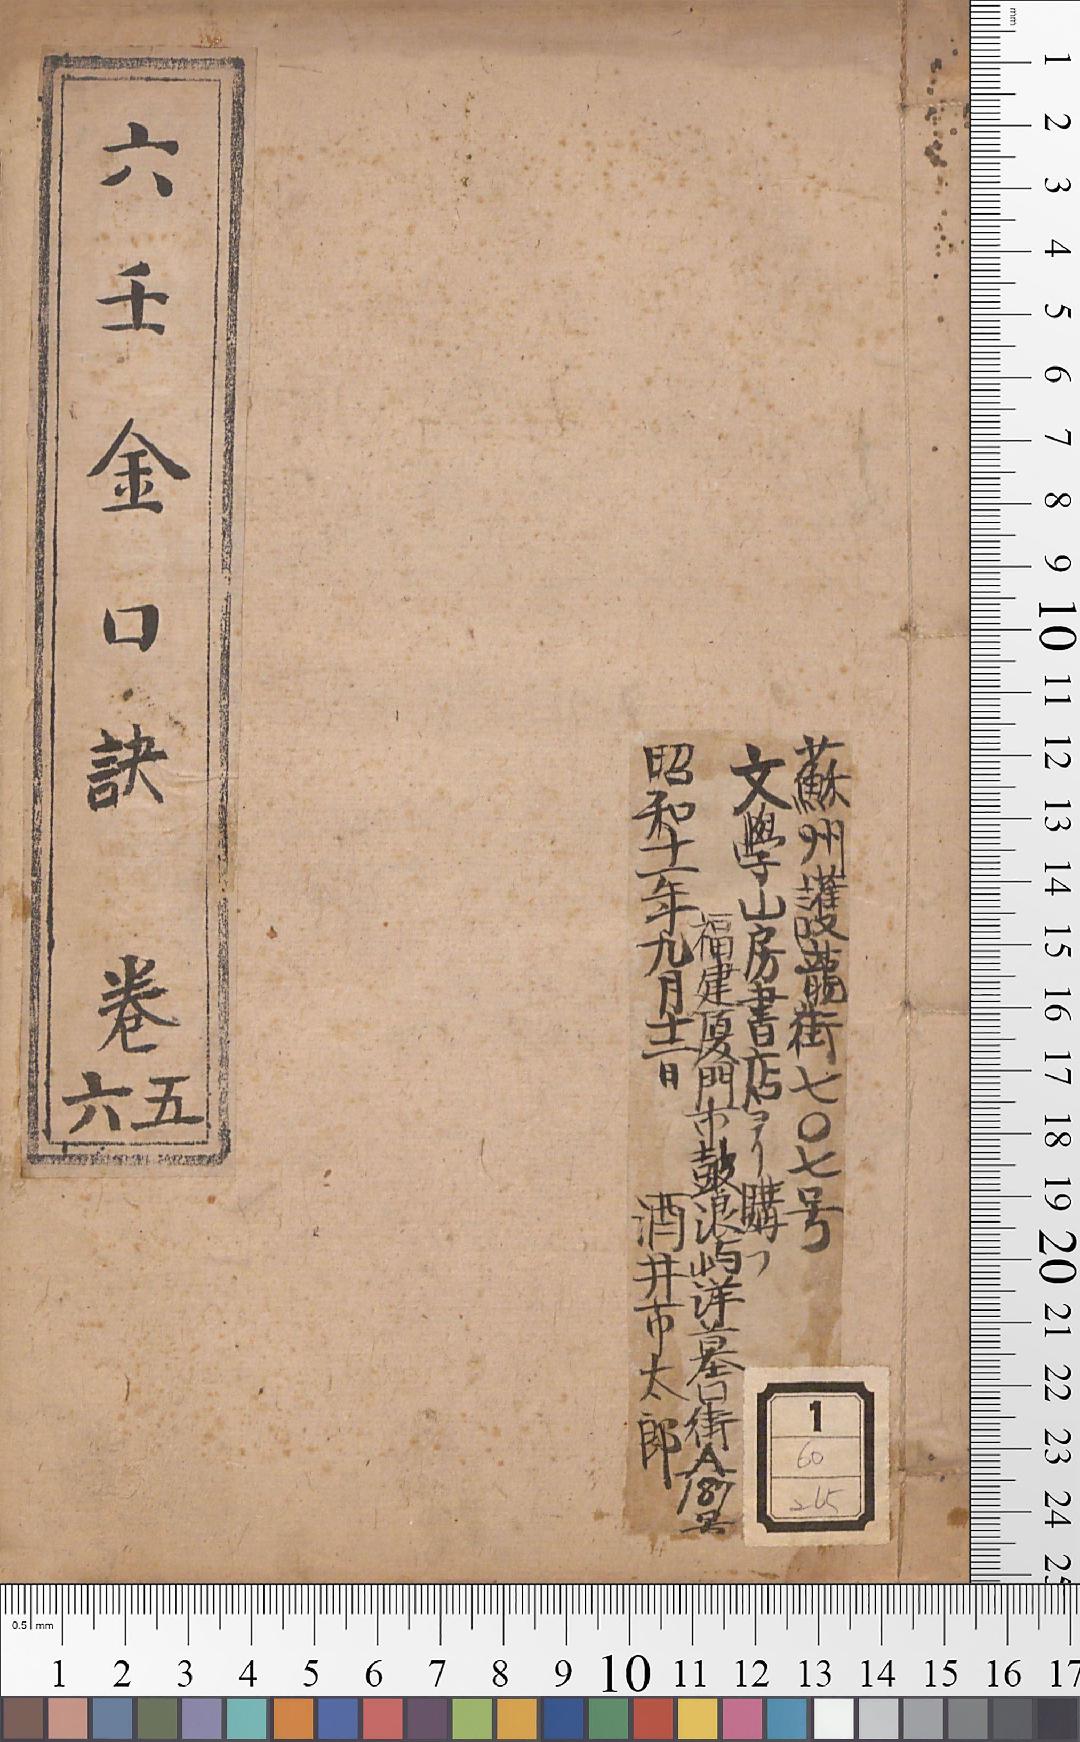 蘇州護龍街七〇七号
文學山房書店ヨリ購フ
福建厦門市鼓浪屿洋墓口街A187号
昭和十一年九月十二日
酒井市太郎
六壬金口訣 卷五六
1
60
215
mm
1 2 3 4 5 6 7 8 9 10 11 12 13 14 15 16 17 18 19 20 21 22 23 24 25
0.5 mm
1 2 3 4 5 6 7 8 9 10 11 12 13 14 15 16 17